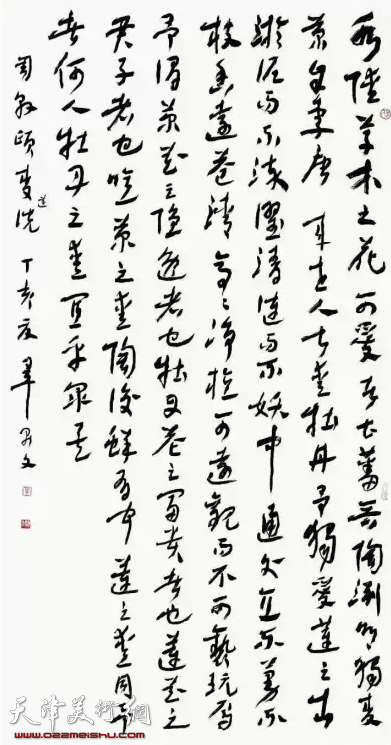 水陸草木之花可愛者甚蕃晉陶淵明獨愛
菊自李唐来世人甚愛牡丹予獨愛蓮之出
淤泥而不染濯清漣而不妖中通外直不蔓不
枝香遠益清亭〻净植可遠觀而不可褻玩焉
予謂菊花之隱逸者也牡丹花之富貴者也蓮花之
君子者也噫菊之愛陶後鮮有聞蓮之愛同予
者何人牡丹之愛宜乎眾矣
周敦頤愛蓮说 丁亥夏
天津美术网
www.022meishu.com